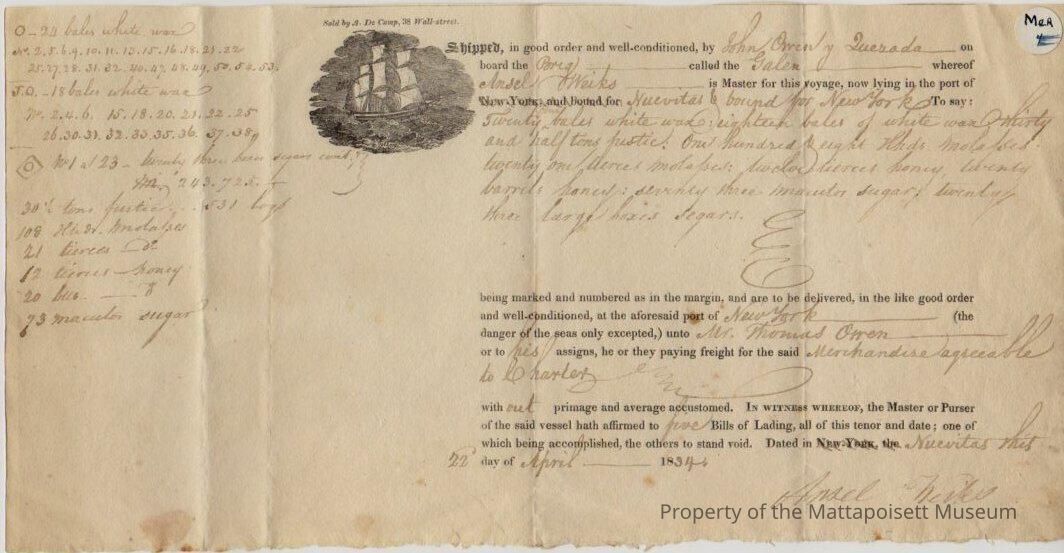 Sold by A. De Camp, 38 Wall-street.
MER
O - 24 bales white wax
Nr. 2. 5. 6. 9. 10. 11. 13. 15. 16. 18. 21. 22
25. 27. 28. 31. 32. 40. 47. 48. 49. 50. 53.
J.O. - 18 bales white wax
Nr. 2. 4. 6. 15. 18. 20. 21. 22. 25
26. 30. 31. 32. 33. 35. 36. 37. 38
O Nr 1 23 - twenty three boxes segars
243.725.
30½ tons fustic 531 logs
108 Hhds. Molasses
21 tierces do
12 tierces honey
20 bls.
73 macutos sugar
Shipped, in good order and well-conditioned, by John Owen y Quezada on
board the Brig called the Galen whereof
Ansel Weeks is Master for this voyage, now lying in the port of
New-York, and bound for Nuevitas & bound for New York To say:
Twenty bales white wax: eighteen bales of white wax: thirty
and half tons fustic: One hundred & eight Hhds. molasses:
twenty one tierces molasses: twelve tierces honey, twenty
barrels honey: seventy three macutos sugar: twenty
three large boxes segars.
being marked and numbered as in the margin, and are to be delivered, in the like good order
and well-conditioned, at the aforesaid port of New York (the
danger of the seas only excepted,) unto Mr. Thomas Owen
or to his assigns, he or they paying freight for the said Merchandise agreeable
to Charter
with out primage and average accustomed. In witness whereof, the Master or Purser
of the said vessel hath affirmed to five Bills of Lading, all of this tenor and date; one of
which being accomplished, the others to stand void. Dated in New-York, the Nuevitas this
22 day of April 1834
Ansel Weeks
Property of the Mattapoisett Museum